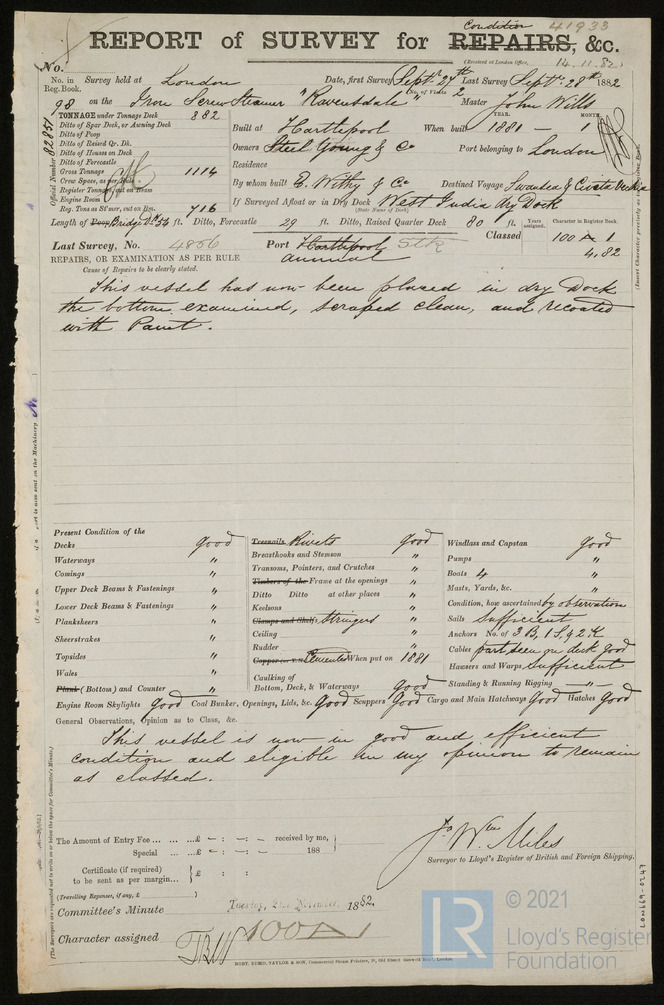 Condition 41933
REPORT of SURVEY for REPAIRS, &c.
(Received at London Office, 14.11.82)
No.
No. in Reg. Book. Survey held at London Date, first Survey Septr 27th Last Survey Septr 28th 1882
(No. of Visits 2
98 on the Iron Screw Steamer "Ravensdale" Master John Wills
TONNAGE under Tonnage Deck 882
Ditto of Spar Deck, or Awning Deck
Ditto of Poop
Ditto of Raised Qr. Dk.
Ditto of Houses on Deck
Ditto of Forecastle
Gross Tonnage 1114
Crew Space, as per Rule
Register Tonnage, cut on Beam
Engine Room
Reg. Tons as St'mer, cut on Bm. 716
Official Number 82851
Built at Hartlepool When built YEAR. 1881 — MONTH. 1
Owners Steel Young & Co Port belonging to London
Residence
By whom built E. Withy & Co Destined Voyage Swansea & Civita Vechia
If Surveyed Afloat or in Dry Dock West India Dry Dock
(State Name of Dock)
Length of Poop Bridge Dk 54 ft. Ditto, Forecastle 29 ft. Ditto, Raised Quarter Deck 80 ft.
Years assigned. Character in Register Book
Last Survey, No. 4856 Port Hartlepool Stk Classed 100 A 1
4,82
REPAIRS, OR EXAMINATION AS PER RULE annual
Cause of Repairs to be clearly stated.
This vessel has now been placed in dry Dock
the bottom examined, scraped clean, and recoated
with Paint.
Present Condition of the
Decks good
Waterways "
Comings "
Upper Deck Beams & Fastenings "
Lower Deck Beams & Fastenings "
Planksheers "
Sheerstrakes "
Topsides "
Wales "
Plank (Bottom) and Counter "
Treenails Rivets good
Breasthooks and Stemson "
Transoms, Pointers, and Crutches "
Timbers of the Frame at the openings "
Ditto Ditto at other places "
Keelsons "
Clamps and Shelfs Stringers "
Ceiling "
Rudder "
Cemented When put on 1881
Caulking of
Bottom, Deck, & Waterways good
Windlass and Capstan good
Pumps "
Boats 4 "
Masts, Yards, &c. "
Condition, how ascertained by observation
Sails Sufficient
Anchors No. of 3 B, 1 S, & 2 K
Cables part seen on deck good
Hawsers and Warps Sufficient
Standing & Running Rigging — " —
Engine Room Skylights Good Coal Bunker, Openings, Lids, &c. Good Scuppers Good Cargo and Main Hatchways Good Hatches Good
General Observations, Opinion as to Class, &c.
This vessel is now in good and efficient
condition and eligible in my opinion to remain
as classed.
The Amount of Entry Fee ... ... ... £ — : — : — received by me,
Special ... ... £ — : — : — 188
Certificate (if required)
to be sent as per margin... £ : :
(Travelling Expenses, if any, £ )
Jo Wm Miles
Surveyor to Lloyd's Register of British and Foreign Shipping.
Committee's Minute Tuesday, 21st November, 1882.
Character assigned 100 A 1
LON669-0247
© 2021
LR
Lloyd's Register
Foundation